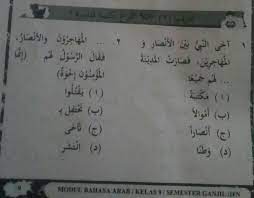 ١ آخَى النَّبِيُّ بَيْنَ الْأَنْصَارِ وَ
الْمُهَاجِرِيْنَ، فَصَارَتْ الْمَدِيْنَةُ
... لَهُمْ جَمِيْعًا.
(١) مَكْتَبَةً
(ب) أَمْوَالاً
(ج) أَنْصَاراً
(د) وَطَنًا
٢. ... الْمُهَاجِرُوْنَ وَالْأَنْصَارُ،
فَقَالَ الرَّسُوْلُ لَهُمْ (إِنَّمَا
الْمُؤْمِنُوْنَ إِخْوَةٌ)
(١) يَقْتُلُوا
(ب) تَحْتَفِل
(ج) تَآخَى
(د) اِنْتَشَرَ
MODUL BAHASA ARAB / KELAS 9 / SEMESTER GANJIL